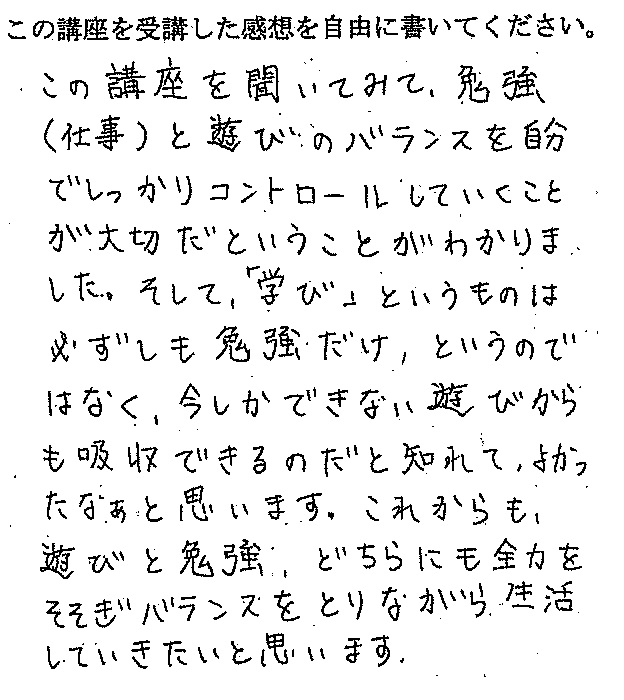 この講座を受講した感想を自由に書いてください。
この講座を聞いてみて、勉強
(仕事)と遊びのバランスを自分
でしっかりコントロールしていくこと
が大切だということがわかりま
した。そして、「学び」というものは
必ずしも勉強だけ、というので
はなく、今しかできない遊びから
も吸収できるのだと知れて、よかっ
たなぁと思います。これからも、
遊びと勉強、どちらにも全力を
そそぎバランスをとりながら生活
していきたいと思います。